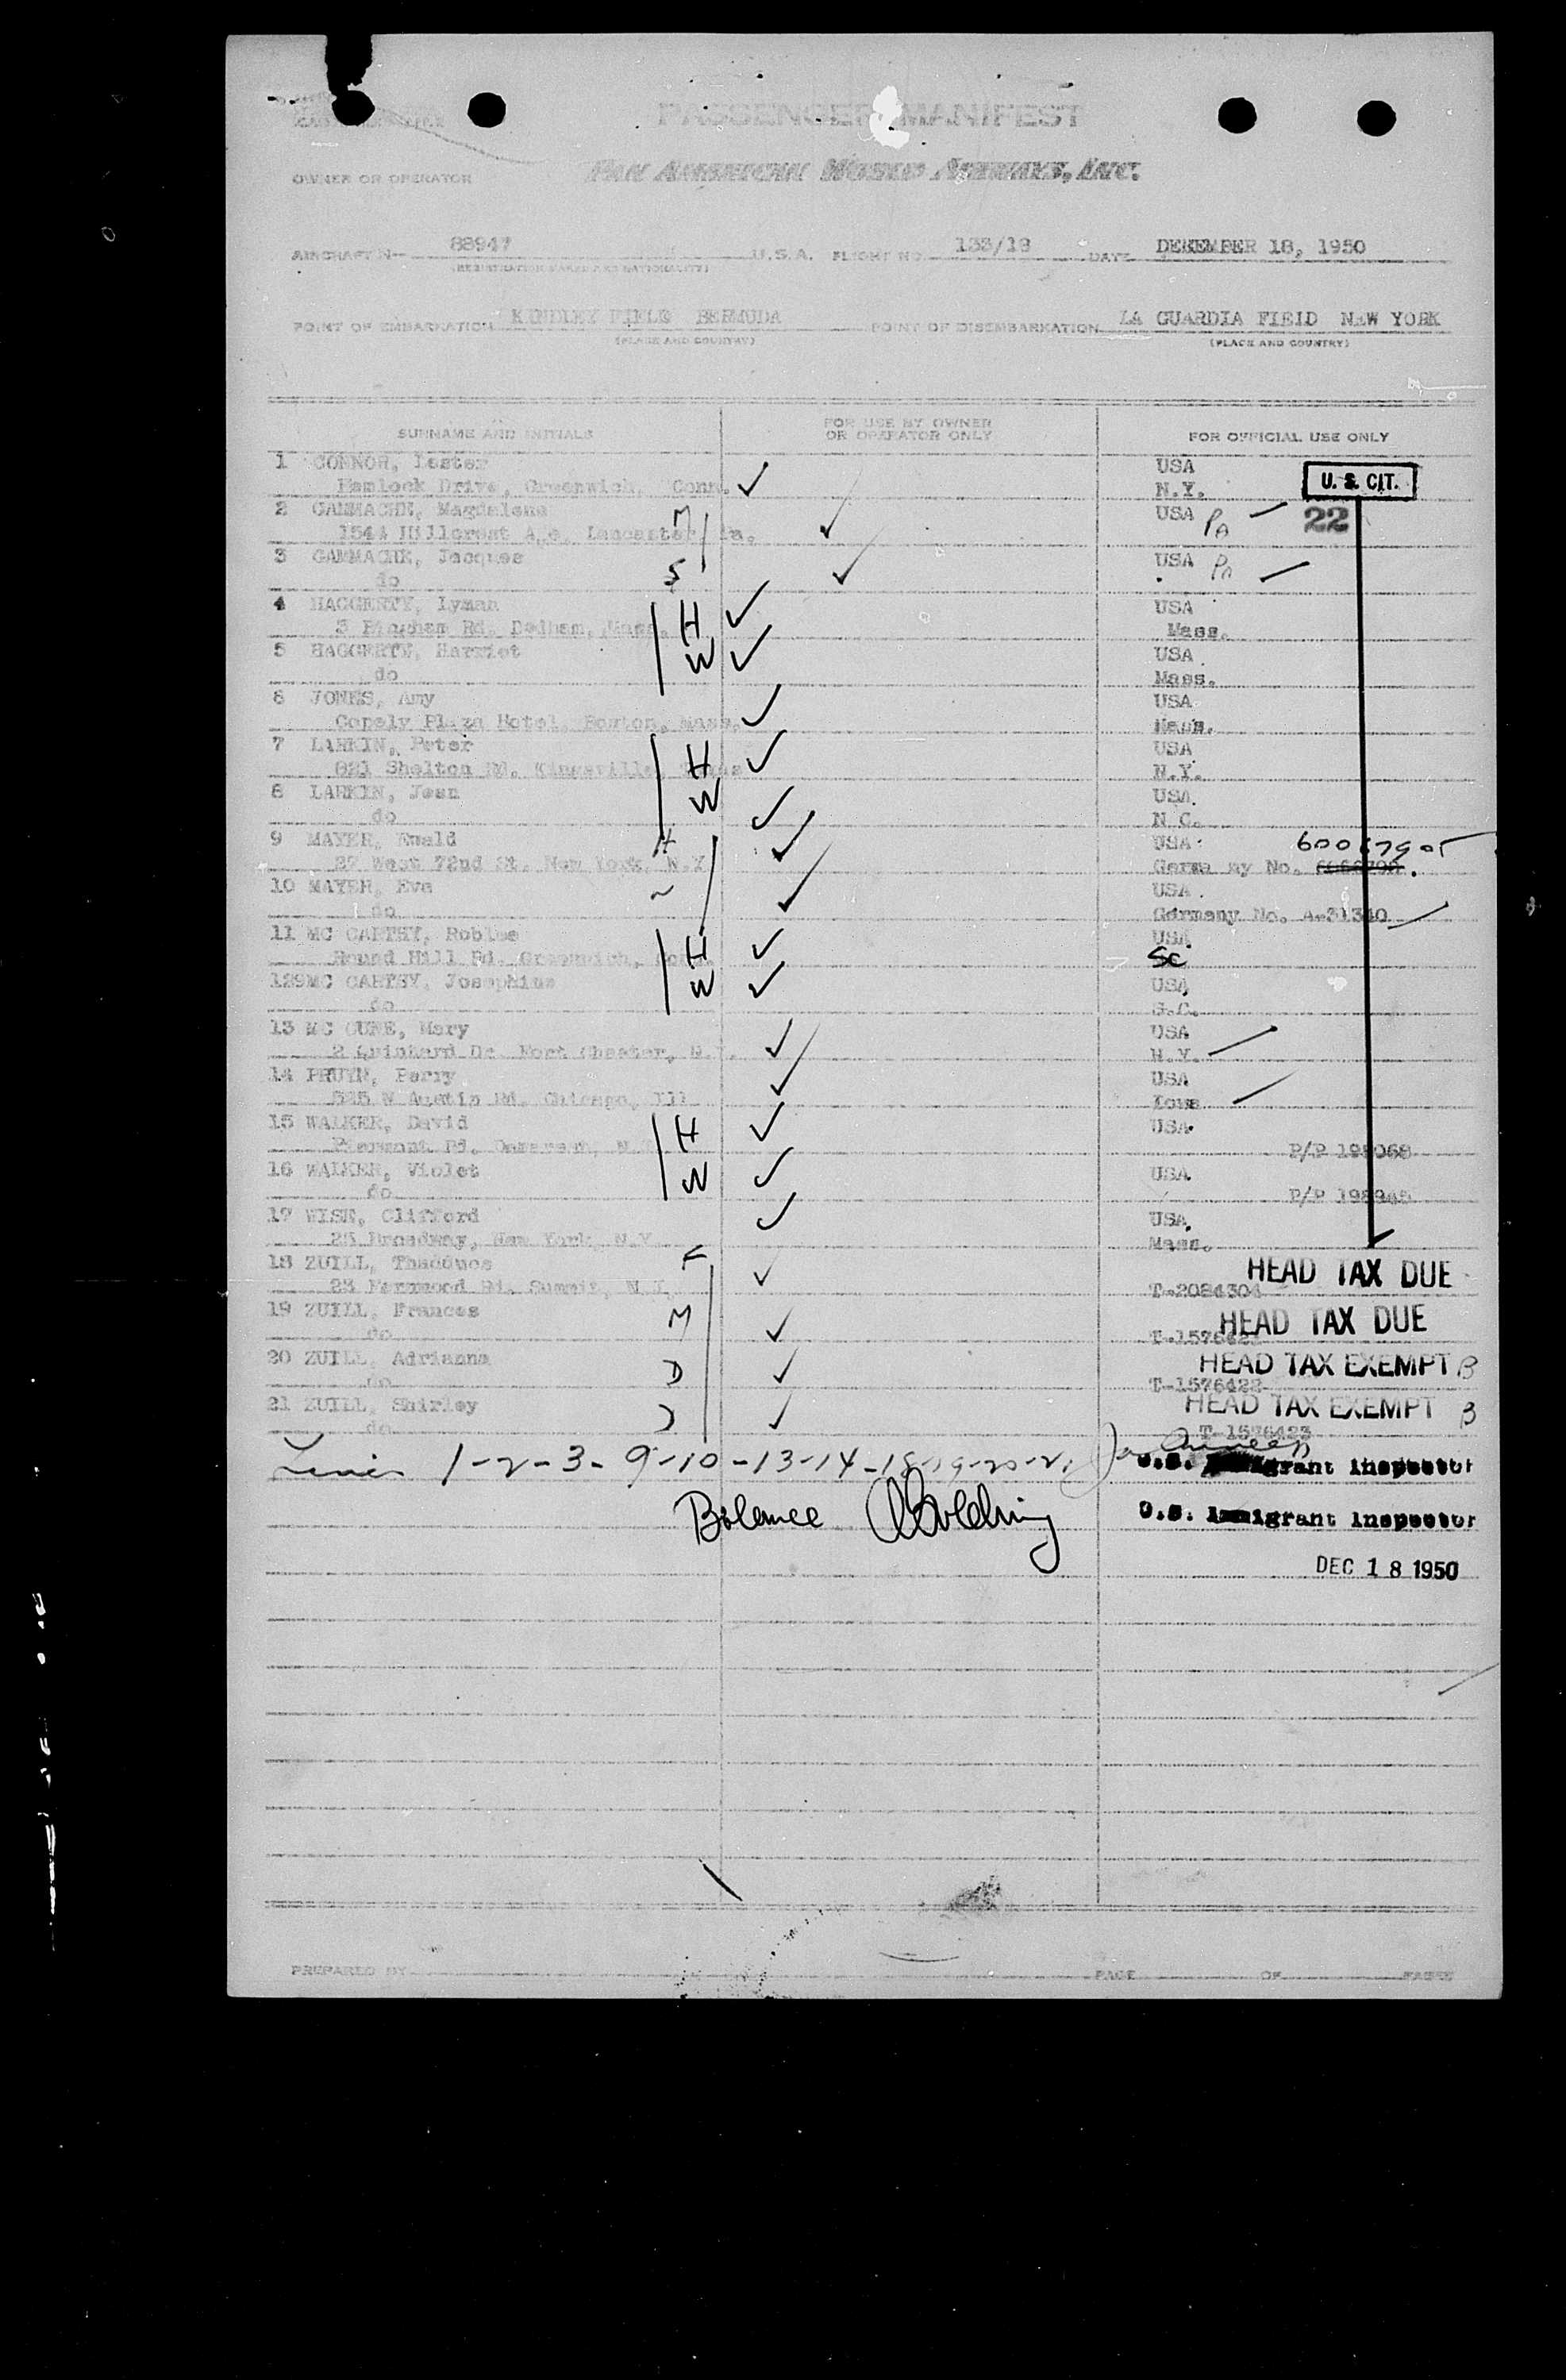 PASSENGER MANIFEST
PAN AMERICAN WORLD AIRWAYS, INC.
OWNER OR OPERATOR
AIRCRAFT N— 88947 U.S.A. FLIGHT NO. 133/18 DATE DEKEMBER 18, 1950
(REGISTRATION MARKS AND NATIONALITY)
POINT OF EMBARKATION KINDLEY FIELD BERMUDA POINT OF DISEMBARKATION LA GUARDIA FIEID NEW YORK
(PLACE AND COUNTRY) (PLACE AND COUNTRY)
SURNAME AND INITIALS FOR USE BY OWNER OR OPERATOR ONLY FOR OFFICIAL USE ONLY
1 CONNOR, Lester USA
Hemlock Drive, Greenwich, Conn. N.Y. U.S. CIT.
2 GAMMACHE, Magdalene M USA PA 22
1544 Hillcrest Ave. Lancaster, Pa.
3 GAMMACHE, Jacques USA Pa
do S
4 HAGGERTY, Lyman H USA
3 Bingham Rd. Dedham, Mass. Mass.
5 HAGGERTY, Harriet W USA
do Mass.
6 JONES, Amy USA
Copely Plaza Hotel, Boston, Mass. Mass.
7 LARKIN, Peter H USA
821 Shelton Rd. Kingsville, Texas N.Y.
8 LARKIN, Jean W USA
do N C.
9 MAYER, Ewald H USA
27 West 72nd St. New York, N.Y. Germany No.
10 MAYER, Eva USA
do Germany No. A-31340
11 MC CARTHY, Roblee H USA
Round Hill Rd. Greenwich, Conn. SC
12 MC CARTHY, Josephine W USA
do S.C.
13 MC CUNE, Mary USA
2 Quinhard Dr. Port Chester, N.Y. N.Y.
14 PRUYN, Perry USA
525 W Austin Rd. Chicago, Ill Iowa
15 WALKER, David H USA
Piermont Rd. P/P 198068
16 WALKER, Violet W USA
do P/P 198945
17 WISE, Clifford USA.
25 Broadway, New York, N.Y. Mass.
18 ZUILL, Thaddues F HEAD TAX DUE
23 Fernwood Rd. Summit, N.J. T-2084304
19 ZUILL, Frances M HEAD TAX DUE
do
20 ZUILL, Adrianna D HEAD TAX EXEMPT B
do T-1576422
21 ZUILL, Shirley D HEAD TAX EXEMPT B
do T-1576423
1-2-3-9-10-13-14-18-19-20-21 U.S. Immigrant Inspector
Balance U.S. Immigrant Inspector
DEC 18 1950
PREPARED BY PAGE OF PAGES